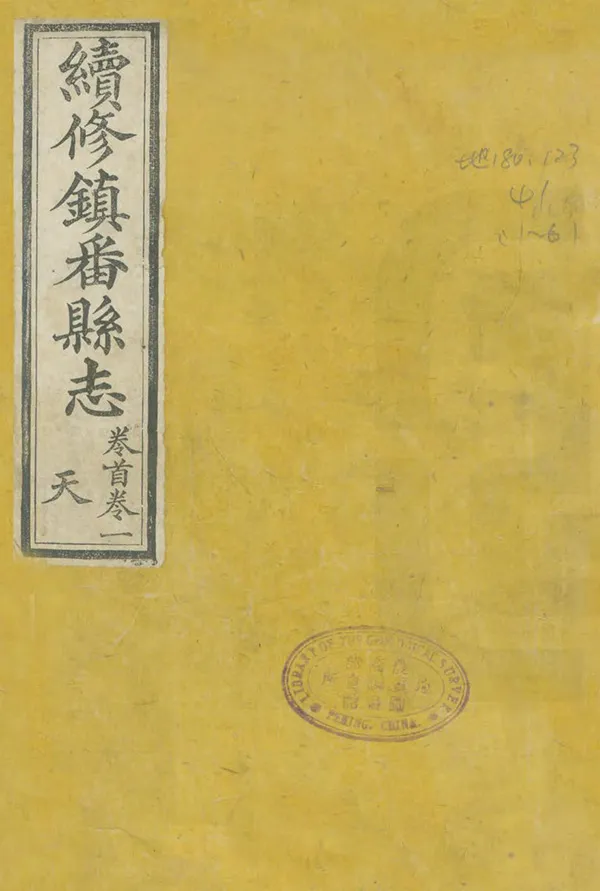 續修鎮番縣志
卷首卷一
天
地180.123
41
LIBRARY OF THE GEOLOGICAL SURVEY
PEKING, CHINA.